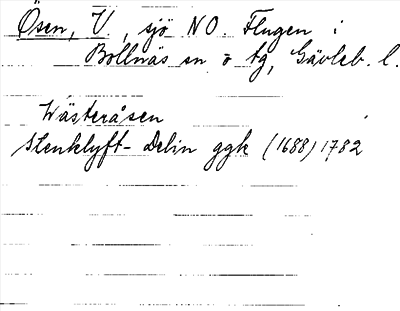 Ösen, V., sjö NO Flugen i
Bollnäs sn o tg, Gävleb. l.
Wästeråsen
Stenklyft- Delin ggk (1688) 1782